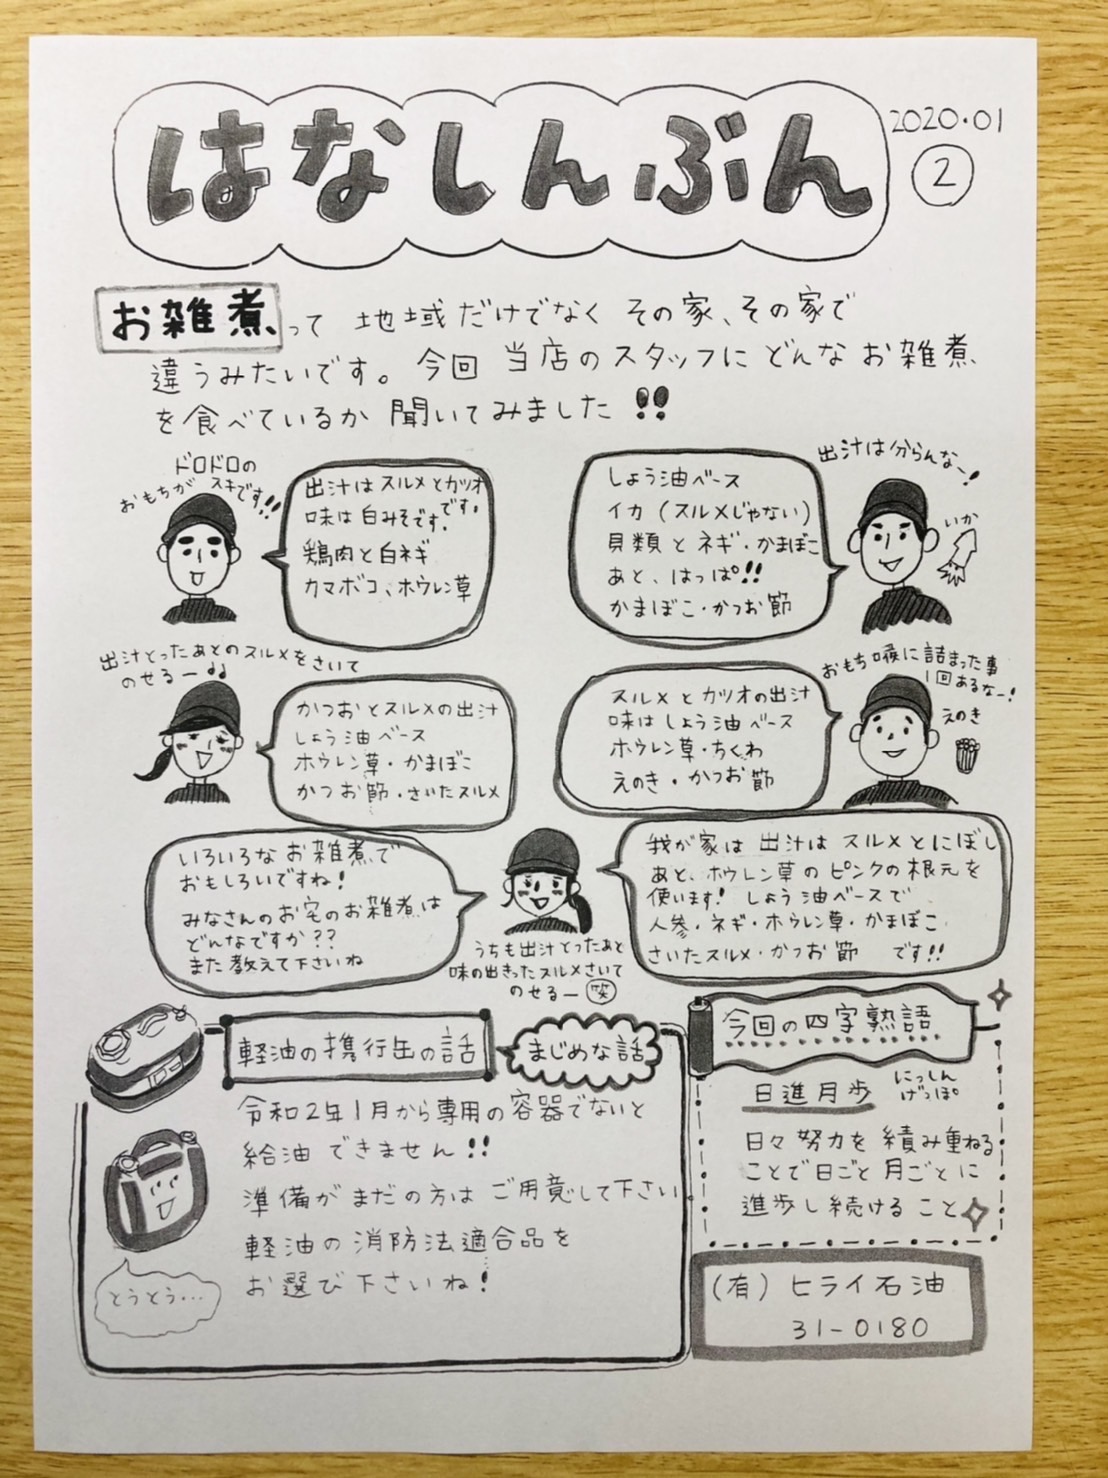 はなしんぶん
2020.01
②
お雑煮って 地域だけでなく その家、その家で
違うみたいです。今回 当店のスタッフに どんな お雑煮
を食べているか 聞いてみました!!
ドロドロの
おもちが スキです!!
出汁は スルメとカツオです。
味は白みそです。
鶏肉と白ネギ
カマボコ、ホウレン草
出汁は分らんなー!
しょう油ベース
イカ(スルメじゃない)
貝類とネギ・かまぼこ
あと、はっぱ!!
かまぼこ・かつお節
いか
出汁とったあとのスルメをさいて
のせるー♫
かつおとスルメの出汁
しょう油ベース
ホウレン草・かまぼこ
かつお節・さいたスルメ
おもち喉に詰まった事
1回あるなー!
スルメとカツオの出汁
味はしょう油ベース
ホウレン草・ちくわ
えのき・かつお節
えのき
いろいろな お雑煮で
おもしろいですね!
みなさんのお宅のお雑煮は
どんなですか??
また教えて下さいね
うちも出汁とったあと
味の出きったスルメさいて
のせるー㊋笑
我が家は 出汁は スルメとにぼし
あと、ホウレン草のピンクの根元を
使います! しょう油ベースで
人参・ネギ・ホウレン草・かまぼこ
さいたスルメ・かつお節 です!!
軽油の携行缶の話
まじめな話
令和2年1月から専用の容器でないと
給油できません!!
準備がまだの方は ご用意して下さい
軽油の消防法適合品を
お選び下さいね!
とうとう…
今回の四字熟語
日進月歩
にっしん
げっぽ
日々努力を積み重ねる
ことで日ごと月ごとに
進歩し続けること
(有)ヒライ石油
31-0180